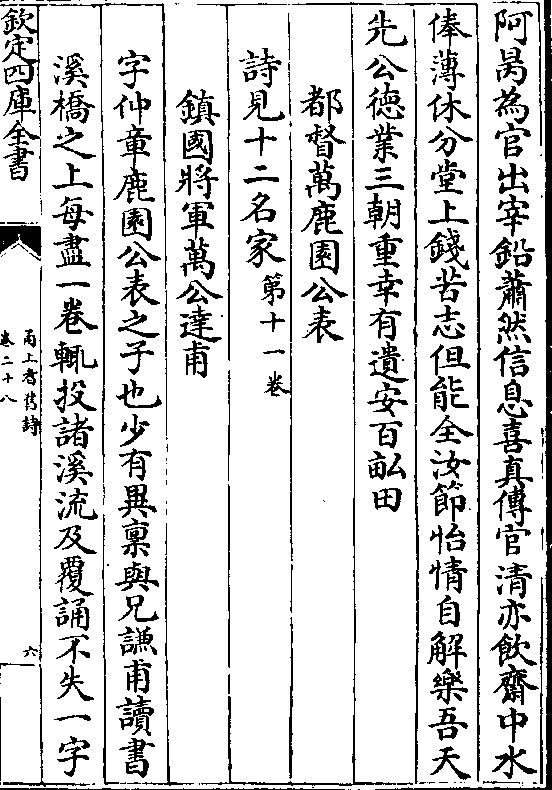 阿昺為官出宰鉛蕭然信息喜真傳官清亦飲齋中水
俸薄休分堂上錢苦志但能全汝節怡情自解樂吾天
先公徳業三朝重幸有遺安百畆田
都督萬鹿園公表
詩見十二名家第十一卷
鎮國將軍萬公達甫
字仲章鹿園公表之子也少有異稟與兄謙甫讀書
溪橋之上每盡一卷輒投諸溪流及覆誦不失一字
欽定四庫全書
甬上耆舊詩
卷二十八
六